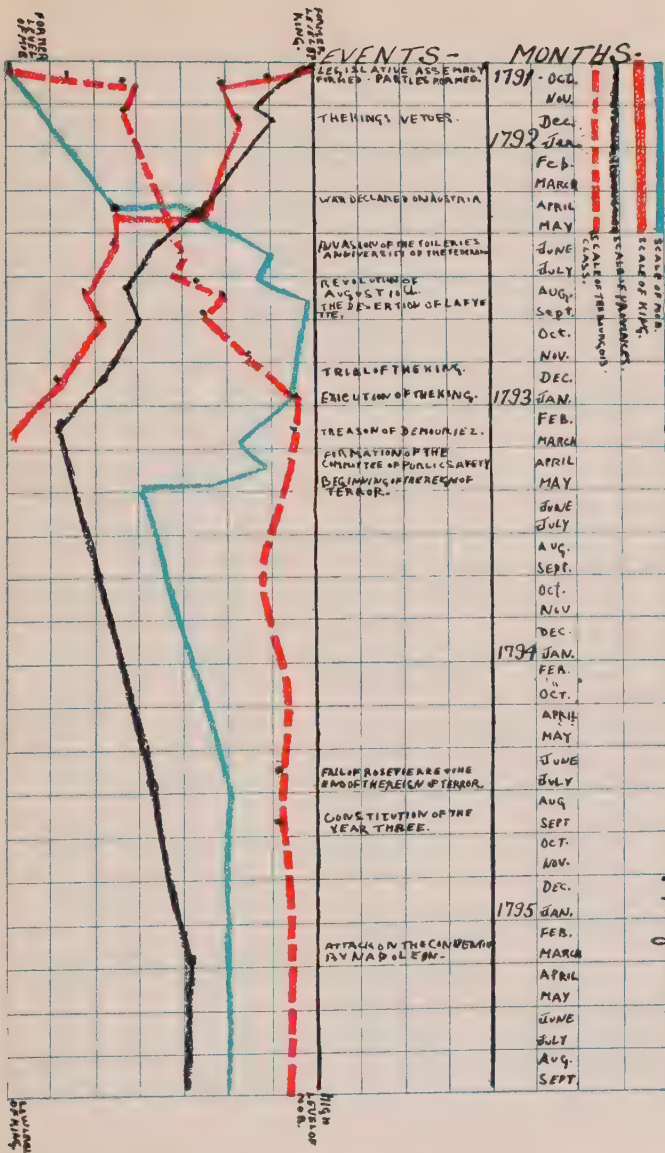 FORMER
LEVEL
OF MOB
FORMER
LEVEL OF
KING.
EVENTS - MONTHS-
LEGISLATIVE ASSEMBLY
FORMED - PARTIES FORMED.
THE KINGS VETOES.
WAR DECLARED ON AUSTRIA
INVASION OF THE TOILERIES
ANNIVERSITY OF THE
REVOLUTION OF
AUGUST 10
THE DESERTION OF LAFYE
TTE.
TRIAL OF THE KING.
EXICUTION OF THE KING.
TREASON OF DEMOURIEZ.
FIRMATION OF THE
COMMITTEE OF PUBLIC SAFETY
BEGINNING OF THE REIGN OF
TERROR.
FALL OF
END OF THE REIGN OF TERROR
CONSTITUTION OF THE
YEAR THREE.
ATTACK ON THE
BY NAPOLEON-
1791 - OCT.
NOV.
Dec.
1792 Jan.
Feb.
MARCH
APRIL
MAY
JUNE
JULY
AUG.
Sept.
Oct.
NOV.
DEC.
1793 JAN.
FEB.
MARCH
APRIL
MAY
JUNE
JULY
AUG.
SEPT.
OCT.
NOV
DEC.
1794 JAN.
FEB.
OCT.
APRIL
MAY
JUNE
JULY
AUG
SEPT
OCT.
NOV.
DEC.
1795 JAN.
FEB.
MARCH
APRIL
MAY
JUNE
JULY
AUG.
SEPT.
SCALE OF THE BOURGOIS.
CLASS.
SCALE OF PROVINCES.
SCALE OF KING.
SCALE OF MOB.
OF KING
HIGH
LEVEL OF
MOB.